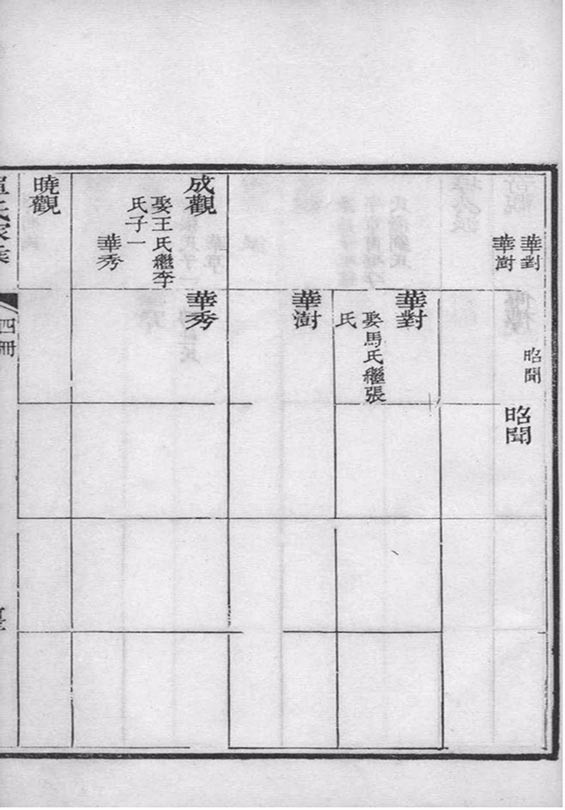 華對
華澍
昭聞
昭聞
華對
娶馬氏繼張
氏
華澍
成觀
娶王氏繼李
氏子一
華秀
華秀
曉觀
四冊